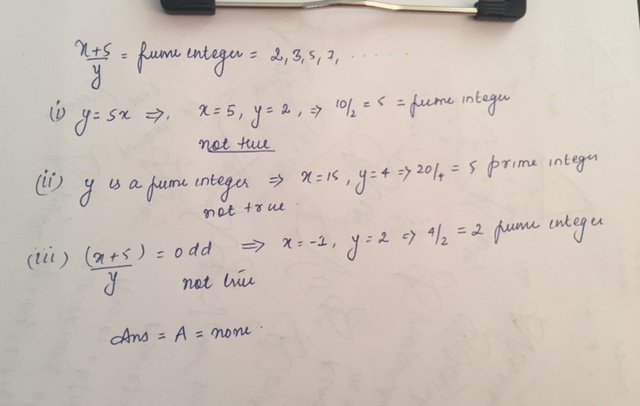 x+5/y = prime integer = 2, 3, 5, 7, ......
(i) y = 5x ⇒, x = 5, y = 2, ⇒ 10/2 = 5 = prime integer
not true
(ii) y is a prime integer ⇒ x = 15, y = 4 ⇒ 20/4 = 5 prime integer
not true.
(iii) (x+5)/y = odd ⇒ x = -1, y = 2 ⇒ 4/2 = 2 prime integer
not true
Ans = A = none.